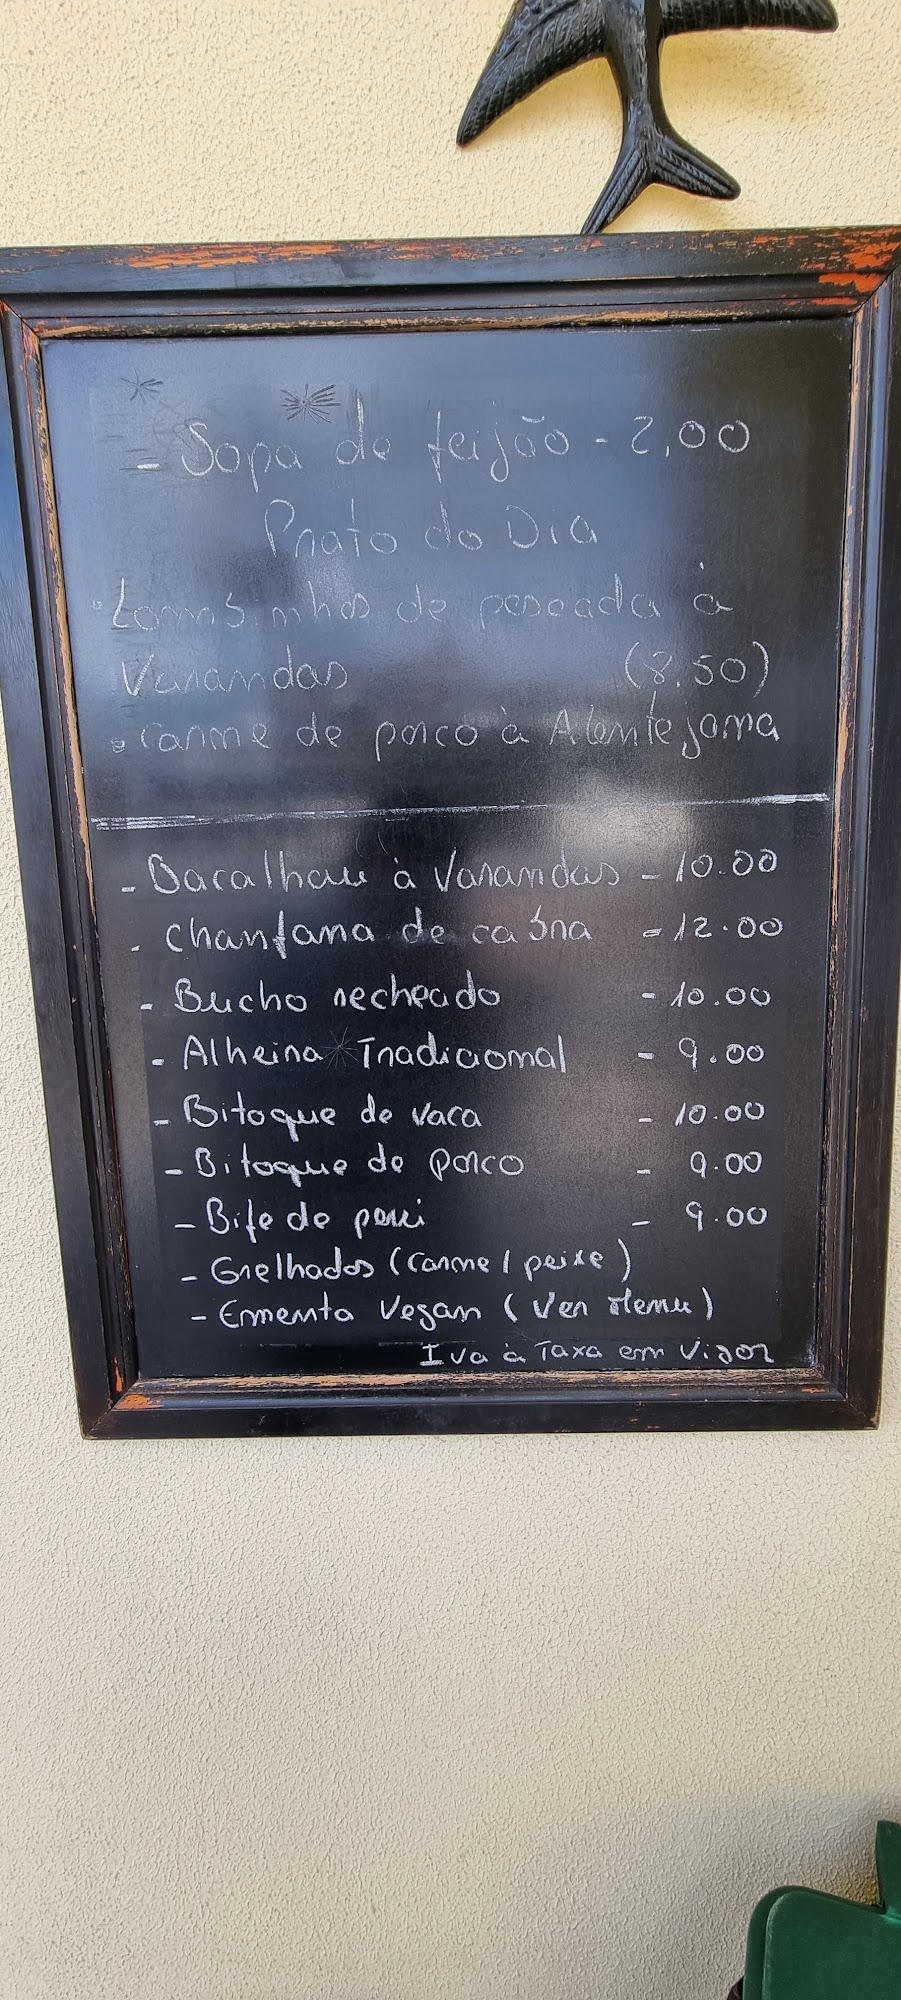 - Sopa de feijão - 2,00
Prato do Dia
Lombinhos de pescada à
Varandas (8.50)
Carne de porco à Alentejana
- Bacalhau à Varandas - 10.00
- Chanfana de cabra - 12.00
- Bucho recheado - 10.00
- Alheira Tradicional - 9.00
- Bitoque de vaca - 10.00
- Bitoque de porco - 9.00
- Bife de peru - 9.00
- Grelhados (carne / peixe)
- Ementa Vegan (Ver Menu)
Iva à Taxa em Vigor